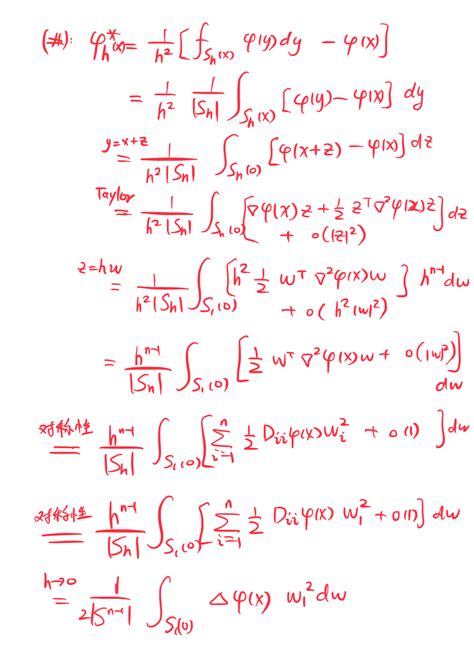 (#): φ*ₕ(x) = 1/h² [⨍_{Sₕ(x)} φ(y)dy − φ(x)]
= 1/h² 1/|Sₕ| ∫_{Sₕ(x)} [φ(y)−φ(x)] dy
y=x+z = 1/(h²|Sₕ|) ∫_{Sₕ(0)} [φ(x+z) − φ(x)] dz
Taylor = 1/(h²|Sₕ|) ∫_{Sₕ(0)} [∇φ(x)z + 1/2 zᵀ∇²φ(x)z + o(|z|²)] dz
z=hw = 1/(h²|Sₕ|) ∫_{S₁(0)} [h² 1/2 wᵀ∇²φ(x)w + o(h²|w|²)] hⁿ⁻¹dw
= hⁿ⁻¹/|Sₕ| ∫_{S₁(0)} [1/2 wᵀ∇²φ(x)w + o(|w|²)] dw
对称性 = hⁿ⁻¹/|Sₕ| ∫_{S₁(0)} [∑_{i=1}^{n} 1/2 Dᵢᵢφ(x)wᵢ² + o(1)] dw
对称性 = hⁿ⁻¹/|Sₕ| ∫_{S₁(0)} [∑_{i=1}^{n} 1/2 Dᵢᵢφ(x) w₁² + o(1)] dw
h→0 = 1/(2|Sⁿ⁻¹|) ∫_{S₁(0)} Δφ(x) w₁² dw